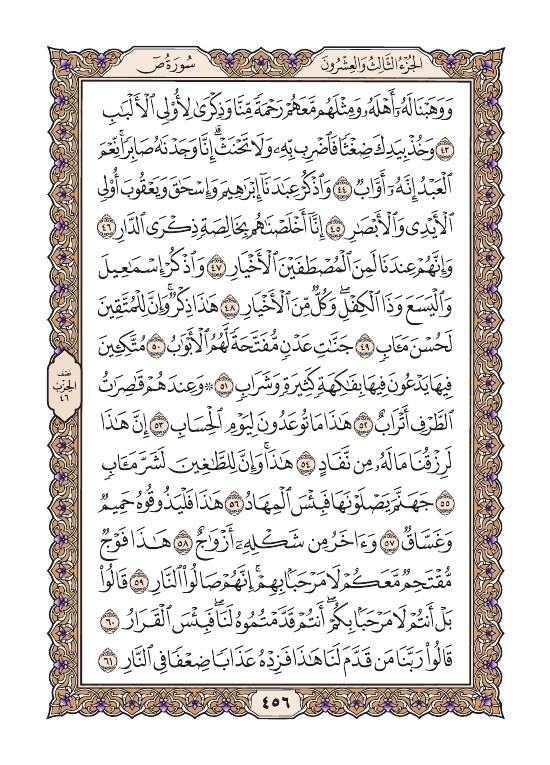 الجُزْءُ الثَّالِثُ وَالعِشْرُونَ
سُورَةُ صٓ
وَوَهَبْنَا لَهُۥٓ أَهْلَهُۥ وَمِثْلَهُم مَّعَهُمْ رَحْمَةً مِّنَّا وَذِكْرَىٰ لِأُو۟لِى ٱلْأَلْبَٰبِ
٤٣ وَخُذْ بِيَدِكَ ضِغْثًا فَٱضْرِب بِّهِۦ وَلَا تَحْنَثْ ۗ إِنَّا وَجَدْنَٰهُ صَابِرًا ۚ نِّعْمَ
ٱلْعَبْدُ ۖ إِنَّهُۥٓ أَوَّابٌ ٤٤ وَٱذْكُرْ عِبَٰدَنَآ إِبْرَٰهِيمَ وَإِسْحَٰقَ وَيَعْقُوبَ أُو۟لِى
ٱلْأَيْدِى وَٱلْأَبْصَٰرِ ٤٥ إِنَّآ أَخْلَصْنَٰهُم بِخَالِصَةٍ ذِكْرَى ٱلدَّارِ ٤٦
وَإِنَّهُمْ عِندَنَا لَمِنَ ٱلْمُصْطَفَيْنَ ٱلْأَخْيَارِ ٤٧ وَٱذْكُرْ إِسْمَٰعِيلَ
وَٱلْيَسَعَ وَذَا ٱلْكِفْلِ ۖ وَكُلٌّ مِّنَ ٱلْأَخْيَارِ ٤٨ هَٰذَا ذِكْرٌ ۚ وَإِنَّ لِلْمُتَّقِينَ
لَحُسْنَ مَـَٔابٍ ٤٩ جَنَّٰتِ عَدْنٍ مُّفَتَّحَةً لَّهُمُ ٱلْأَبْوَٰبُ ٥٠ مُتَّكِـِٔينَ
فِيهَا يَدْعُونَ فِيهَا بِفَٰكِهَةٍ كَثِيرَةٍ وَشَرَابٍ ٥١ ۞ وَعِندَهُمْ قَٰصِرَٰتُ
ٱلطَّرْفِ أَتْرَابٌ ٥٢ هَٰذَا مَا تُوعَدُونَ لِيَوْمِ ٱلْحِسَابِ ٥٣ إِنَّ هَٰذَا
لَرِزْقُنَا مَا لَهُۥ مِن نَّفَادٍ ٥٤ هَٰذَا ۚ وَإِنَّ لِلطَّٰغِينَ لَشَرَّ مَـَٔابٍ
٥٥ جَهَنَّمَ يَصْلَوْنَهَا فَبِئْسَ ٱلْمِهَادُ ٥٦ هَٰذَا فَلْيَذُوقُوهُ حَمِيمٌ
وَغَسَّاقٌ ٥٧ وَءَاخَرُ مِن شَكْلِهِۦٓ أَزْوَٰجٌ ٥٨ هَٰذَا فَوْجٌ
مُّقْتَحِمٌ مَّعَكُمْ ۖ لَا مَرْحَبًۢا بِهِمْ ۚ إِنَّهُمْ صَالُوا۟ ٱلنَّارِ ٥٩ قَالُوا۟
بَلْ أَنتُمْ لَا مَرْحَبًۢا بِكُمْ ۖ أَنتُمْ قَدَّمْتُمُوهُ لَنَا ۖ فَبِئْسَ ٱلْقَرَارُ ٦٠
قَالُوا۟ رَبَّنَا مَن قَدَّمَ لَنَا هَٰذَا فَزِدْهُ عَذَابًا ضِعْفًا فِى ٱلنَّارِ ٦١
نصف
الحزب
٤٦
٤٥٦